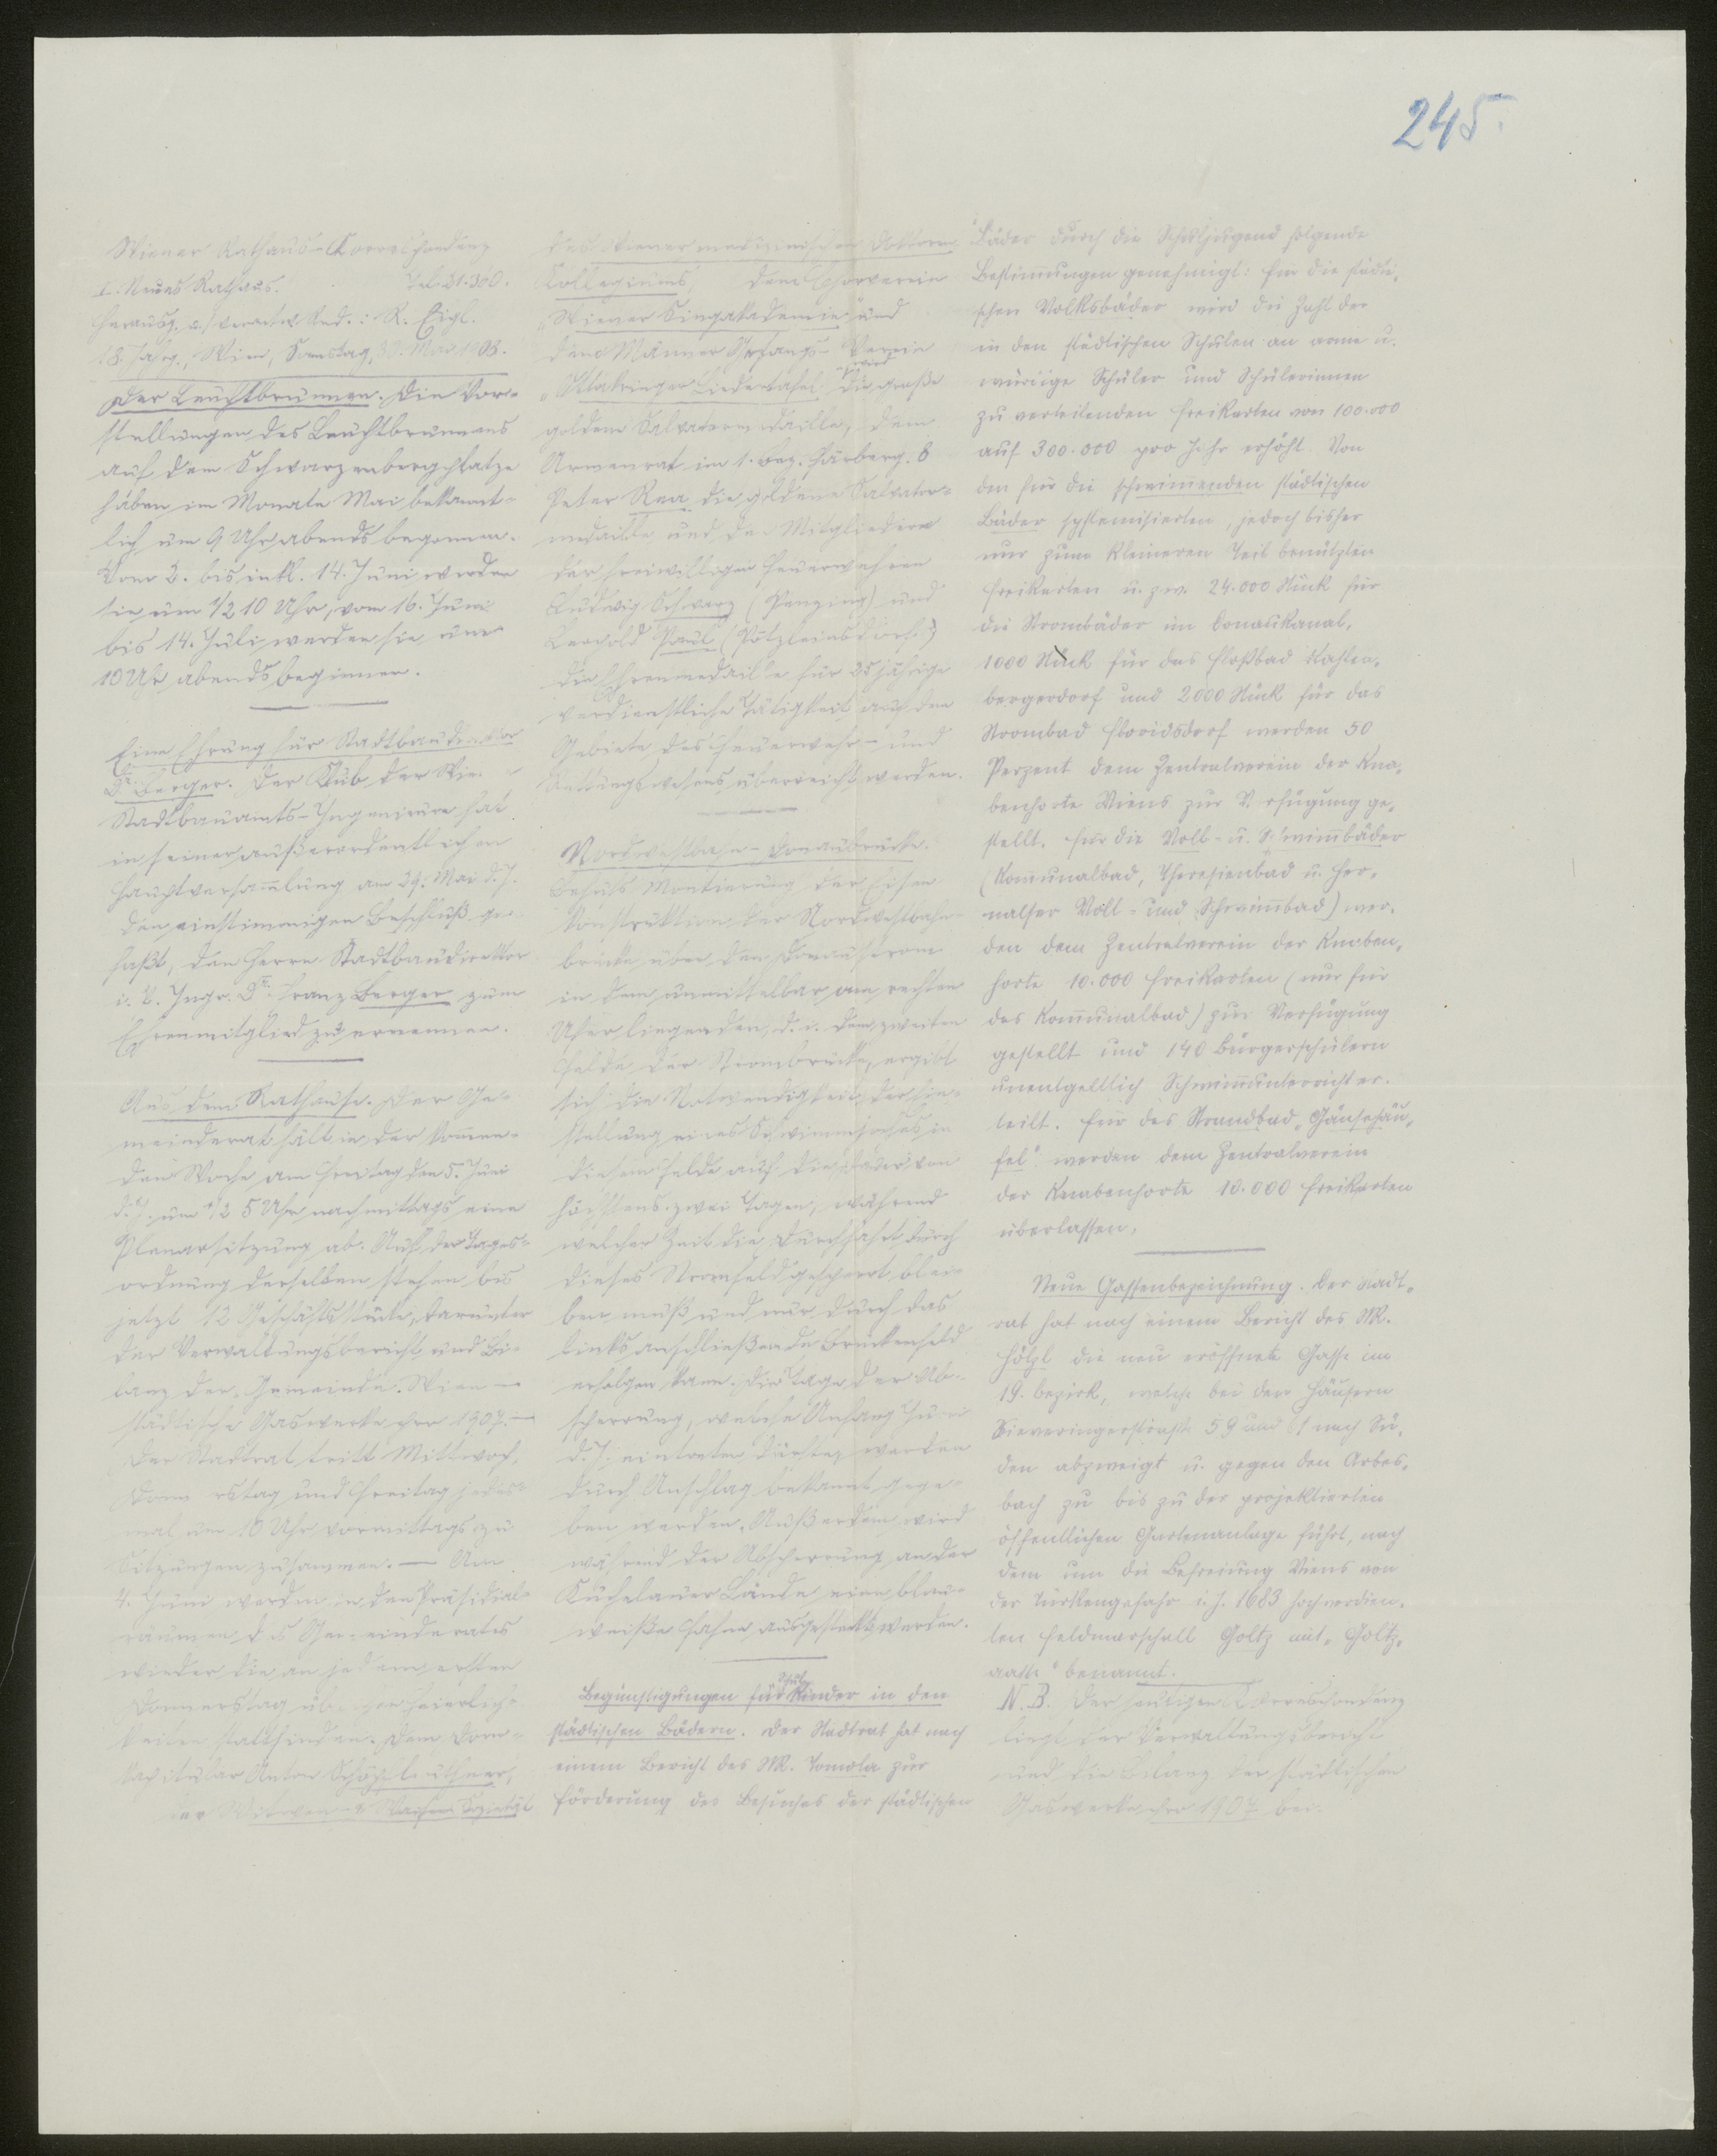 245.
Wiener Rathaus-Korrespondenz
I. Neues Rathaus. Tel. 31.360.
Herausg. u. verantw. Red.: R. Eigl.
18. Jahrg., Wien, Samstag, 30. Mai 1908.
Der Leuchtbrunnen. Die Vor-
stellungen des Leuchtbrunnens
auf dem Schwarzenbergplatze
haben im Monate Mai bekannt-
lich um 9 Uhr abends begonnen.
Vom 2. bis inkl. 14. Juni werden
sie um 1/2 10 Uhr, vom 16. Juni
bis 14. Juli werden sie um
10 Uhr abends beginnen.
Eine Ehrung für Stadtbaudirektor
Dr. Berger. Der Klub der Wiener
Stadtbauamts-Ingenieure hat
in seiner außerordentlichen
Hauptversammlung am 29. Mai d. J.
den einstimmigen Beschluß ge-
faßt, den Herrn Stadtbaudirektor
i. P. Ingr. Dr. Franz Berger zum
Ehrenmitglied zu ernennen.
Aus dem Rathause. Der Ge-
meinderat hält in der kommen-
den Woche am Freitag den 5. Juni
d. J. um 1/2 5 Uhr nachmittags eine
Plenarsitzung ab. Auf der Tages-
ordnung derselben stehen bis
jetzt 12 Geschäftsstücke, darunter
der Verwaltungsbericht und Bi-
lanz der „Gemeinde Wien –
städtische Gaswerke pro 1907. –
Der Stadtrat tritt Mittwoch,
Donnerstag und Freitag jedes-
mal um 10 Uhr vormittags zu
Sitzungen zusammen. — Am
4. Juni werden in den Präsidial-
räumen des Gemeinderates
wieder die an jedem ersten
Donnerstag üblichen Feierlich-
keiten stattfinden. Dem Dom-
kapitular Anton Schöpfleuthner,
der Witwen- & Waisen Sozietät
des Wiener medizinischen Doktoren
Kollegiums, dem Chorverein
„Wiener Singakademie und
dem Männer Gesangs-Verein
„Ottakringer Liedertafel wird die große
goldene Salvatormedaille, dem
Armenrat im 1. Bez. Färberg. 8
Peter Rea die goldene Salvator-
medaille und den Mitgliedern
der freiwilligen Feuerwehren
Ludwig Schwarz (Penzing) und
Leopold Paul (Pötzleinsdorf)
die Ehrenmedaille für 25 jährige
verdienstliche Tätigkeit auf dem
Gebiete des Feuerwehr- und
Rettungswesens überreicht werden.
Nordwestbahn-Donaubrücke.
Behufs Montierung der Eisen
konstruktion der Nordwestbahn-
brücke über den Donaustrom
in dem unmittelbar am rechten
Ufer liegenden, d. i. dem zweiten
Felde der Strombrücke, ergibt
sich die Notwendigkeit der Ein-
stellung eines Schwimmjoches in
diesem Felde auf die Dauer von
höchstens zwei Tagen, während
welcher Zeit die Durchfahrt durch
dieses Stromfeld gesperrt blei-
ben muß und nur durch das
links anschließende Brückenfeld
erfolgen kann. Die Tage der Ab-
sperrung, welche Anfang Juni
d. J. eintreten dürfte, werden
durch Anschlag bekannt gege-
ben werden. Außerdem wird
während der Absperrung an der
Kuchelauer Lände eine blau-
weiße Fahne ausgesteckt werden.
Begünstigungen für Schulkinder in den
städtischen Bädern. Der Stadtrat hat nach
einem Bericht des StR. Tomola zur
Förderung des Besuches der städtischen
Bäder durch die Schuljugend folgende
Bestimmungen genehmigt: Für die städti-
schen Volksbäder wird die Zahl der
in den städtischen Schulen an arme u.
würdige Schüler und Schülerinnen
zu verteilenden Freikarten von 100.000
auf 300.000 pro Jahr erhöht. Von
den für die schwimmenden städtischen
Bäder systemisierten, jedoch bisher
nur zum kleineren Teil benützten
Freikarten u. zw. 24.000 Stück für
die Strombäder im Donaukanal,
1000 Stück für das Floßbad Kahlen-
bergerdorf und 2000 Stück für das
Strombad Floridsdorf werden 50
Perzent dem Zentralverein der Kna-
benhorte Wiens zur Verfügung ge-
stellt. Für die Voll- u. Schwimmbäder
(Kommunalbad, Theresienbad u. Her-
nalser Voll- und Schwimmbad) wer-
den dem Zentralverein der Knaben-
horte 10.000 Freikarten (nur für
das Kommunalbad) zur Verfügung
gestellt und 140 Bürgerschülern
unentgeltlich Schwimmunterricht er-
teilt. Für das Strandbad „Gänsehäu-
fel" werden dem Zentralverein
der Knabenhorte 10.000 Freikarten
überlassen.
Neue Gassenbezeichnung. Der Stadt-
rat hat nach einem Bericht des StR.
Hölzl die neu eröffnete Gasse im
19. Bezirk, welche bei den Häusern
Sieveringerstraße 59 und 61 nach Sü-
den abzweigt u. gegen den Arbes-
bach zu bis zu der projektierten
öffentlichen Gartenanlage führt, nach
dem um die Befreiung Wiens von
der Türkengefahr i. J. 1683 hochverdien-
ten Feldmarschall Goltz mit „Goltz-
gasse" benannt.
N. B. Der heutigen Korrespondenz
liegt der Verwaltungsbericht
und die Bilanz der städtischen
Gaswerke pro 1907 bei.